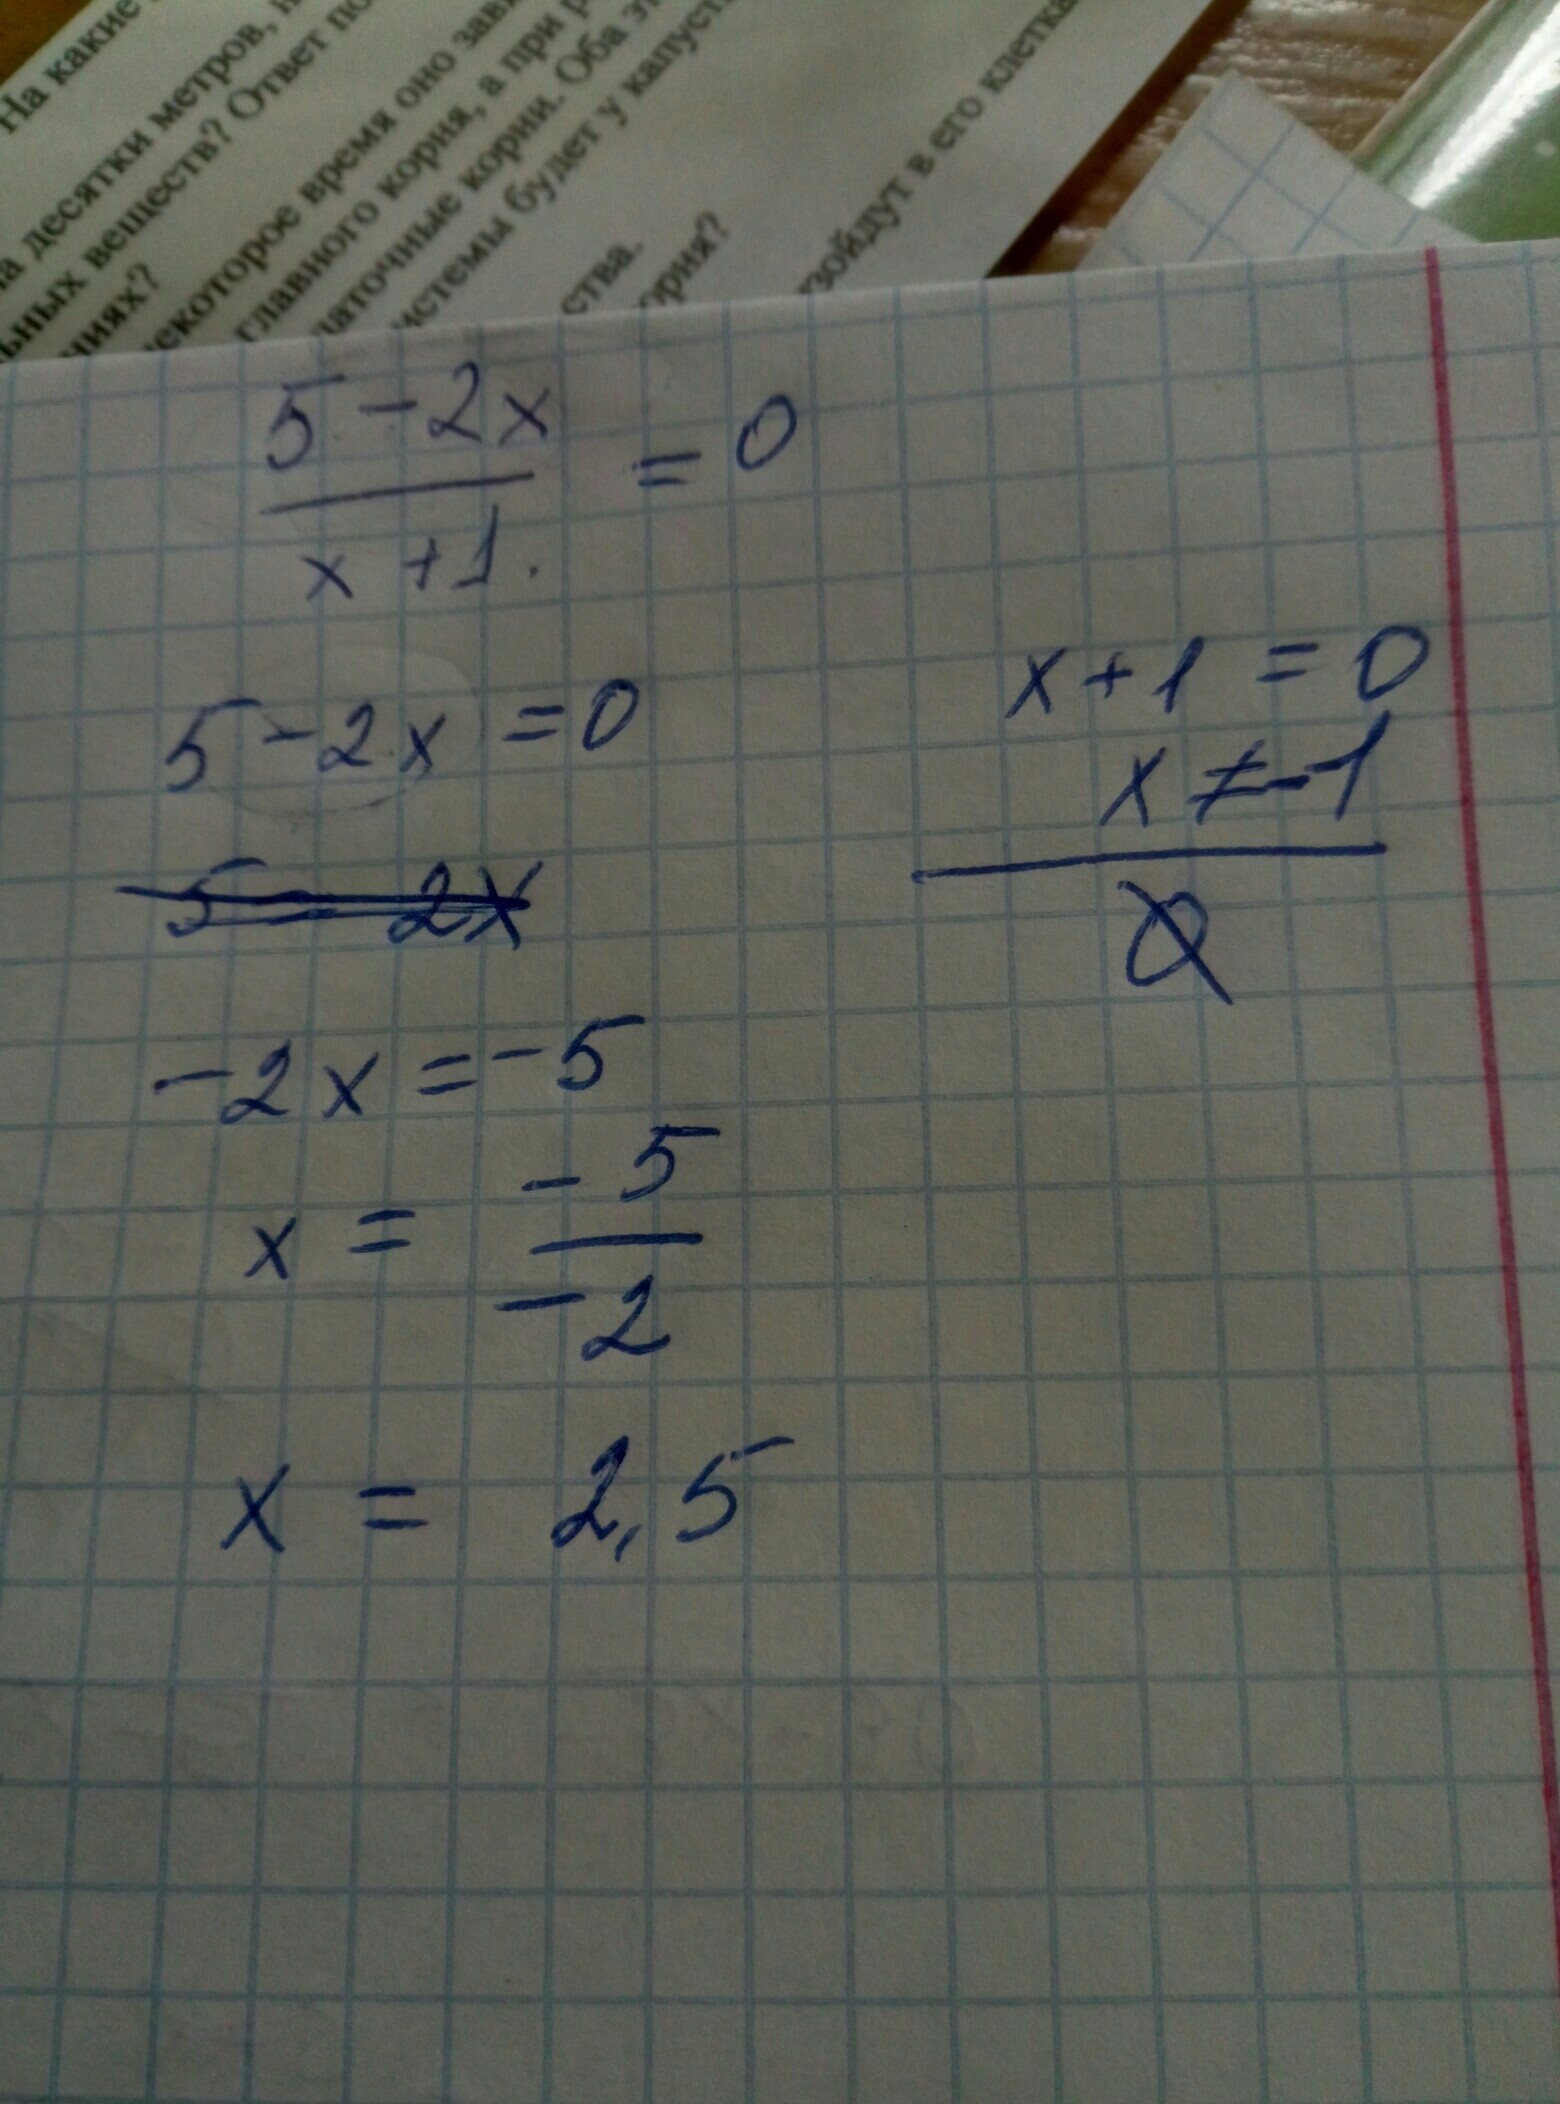 На какие
на десятки метров,
веществ? Ответ
некоторое время оно
главного корня, а при
корни. Оба
будет у капуст
ства.
ория?
зойдут в его клетка
5-2x
____ = 0
x+1.
5-2x=0
5 2x
-2x=-5
x = -5
____
-2
x = 2,5
x+1=0
x≠-1
____
0